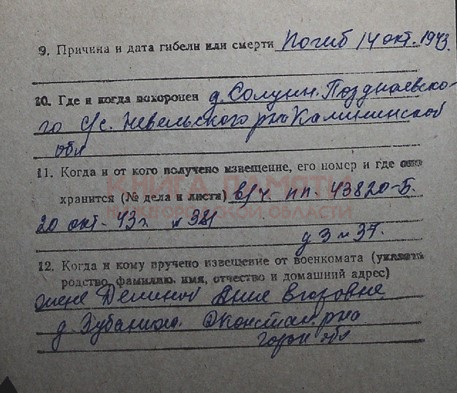 9. Причина и дата гибели или смерти Погиб 14 окт. 1943
10. Где и когда похоронен д. Солуин. Поздноевско-
го с/с. Невельского р-на Калининской
обл
11. Когда и от кого получено извещение, его номер и где оно
хранится (№ дела и листа) в/ч пп. 43820-Б
20 окт. 43г. № 381
д 3 л 37.
12. Когда и кому вручено извещение от военкомата (указать
родство, фамилию, имя, отчество и домашний адрес)
жене Анне Егоровне
д. р-на
горьк обл
КНИГА ПАМЯТИ
НИЖЕГОРОДСКОЙ ОБЛАСТИ